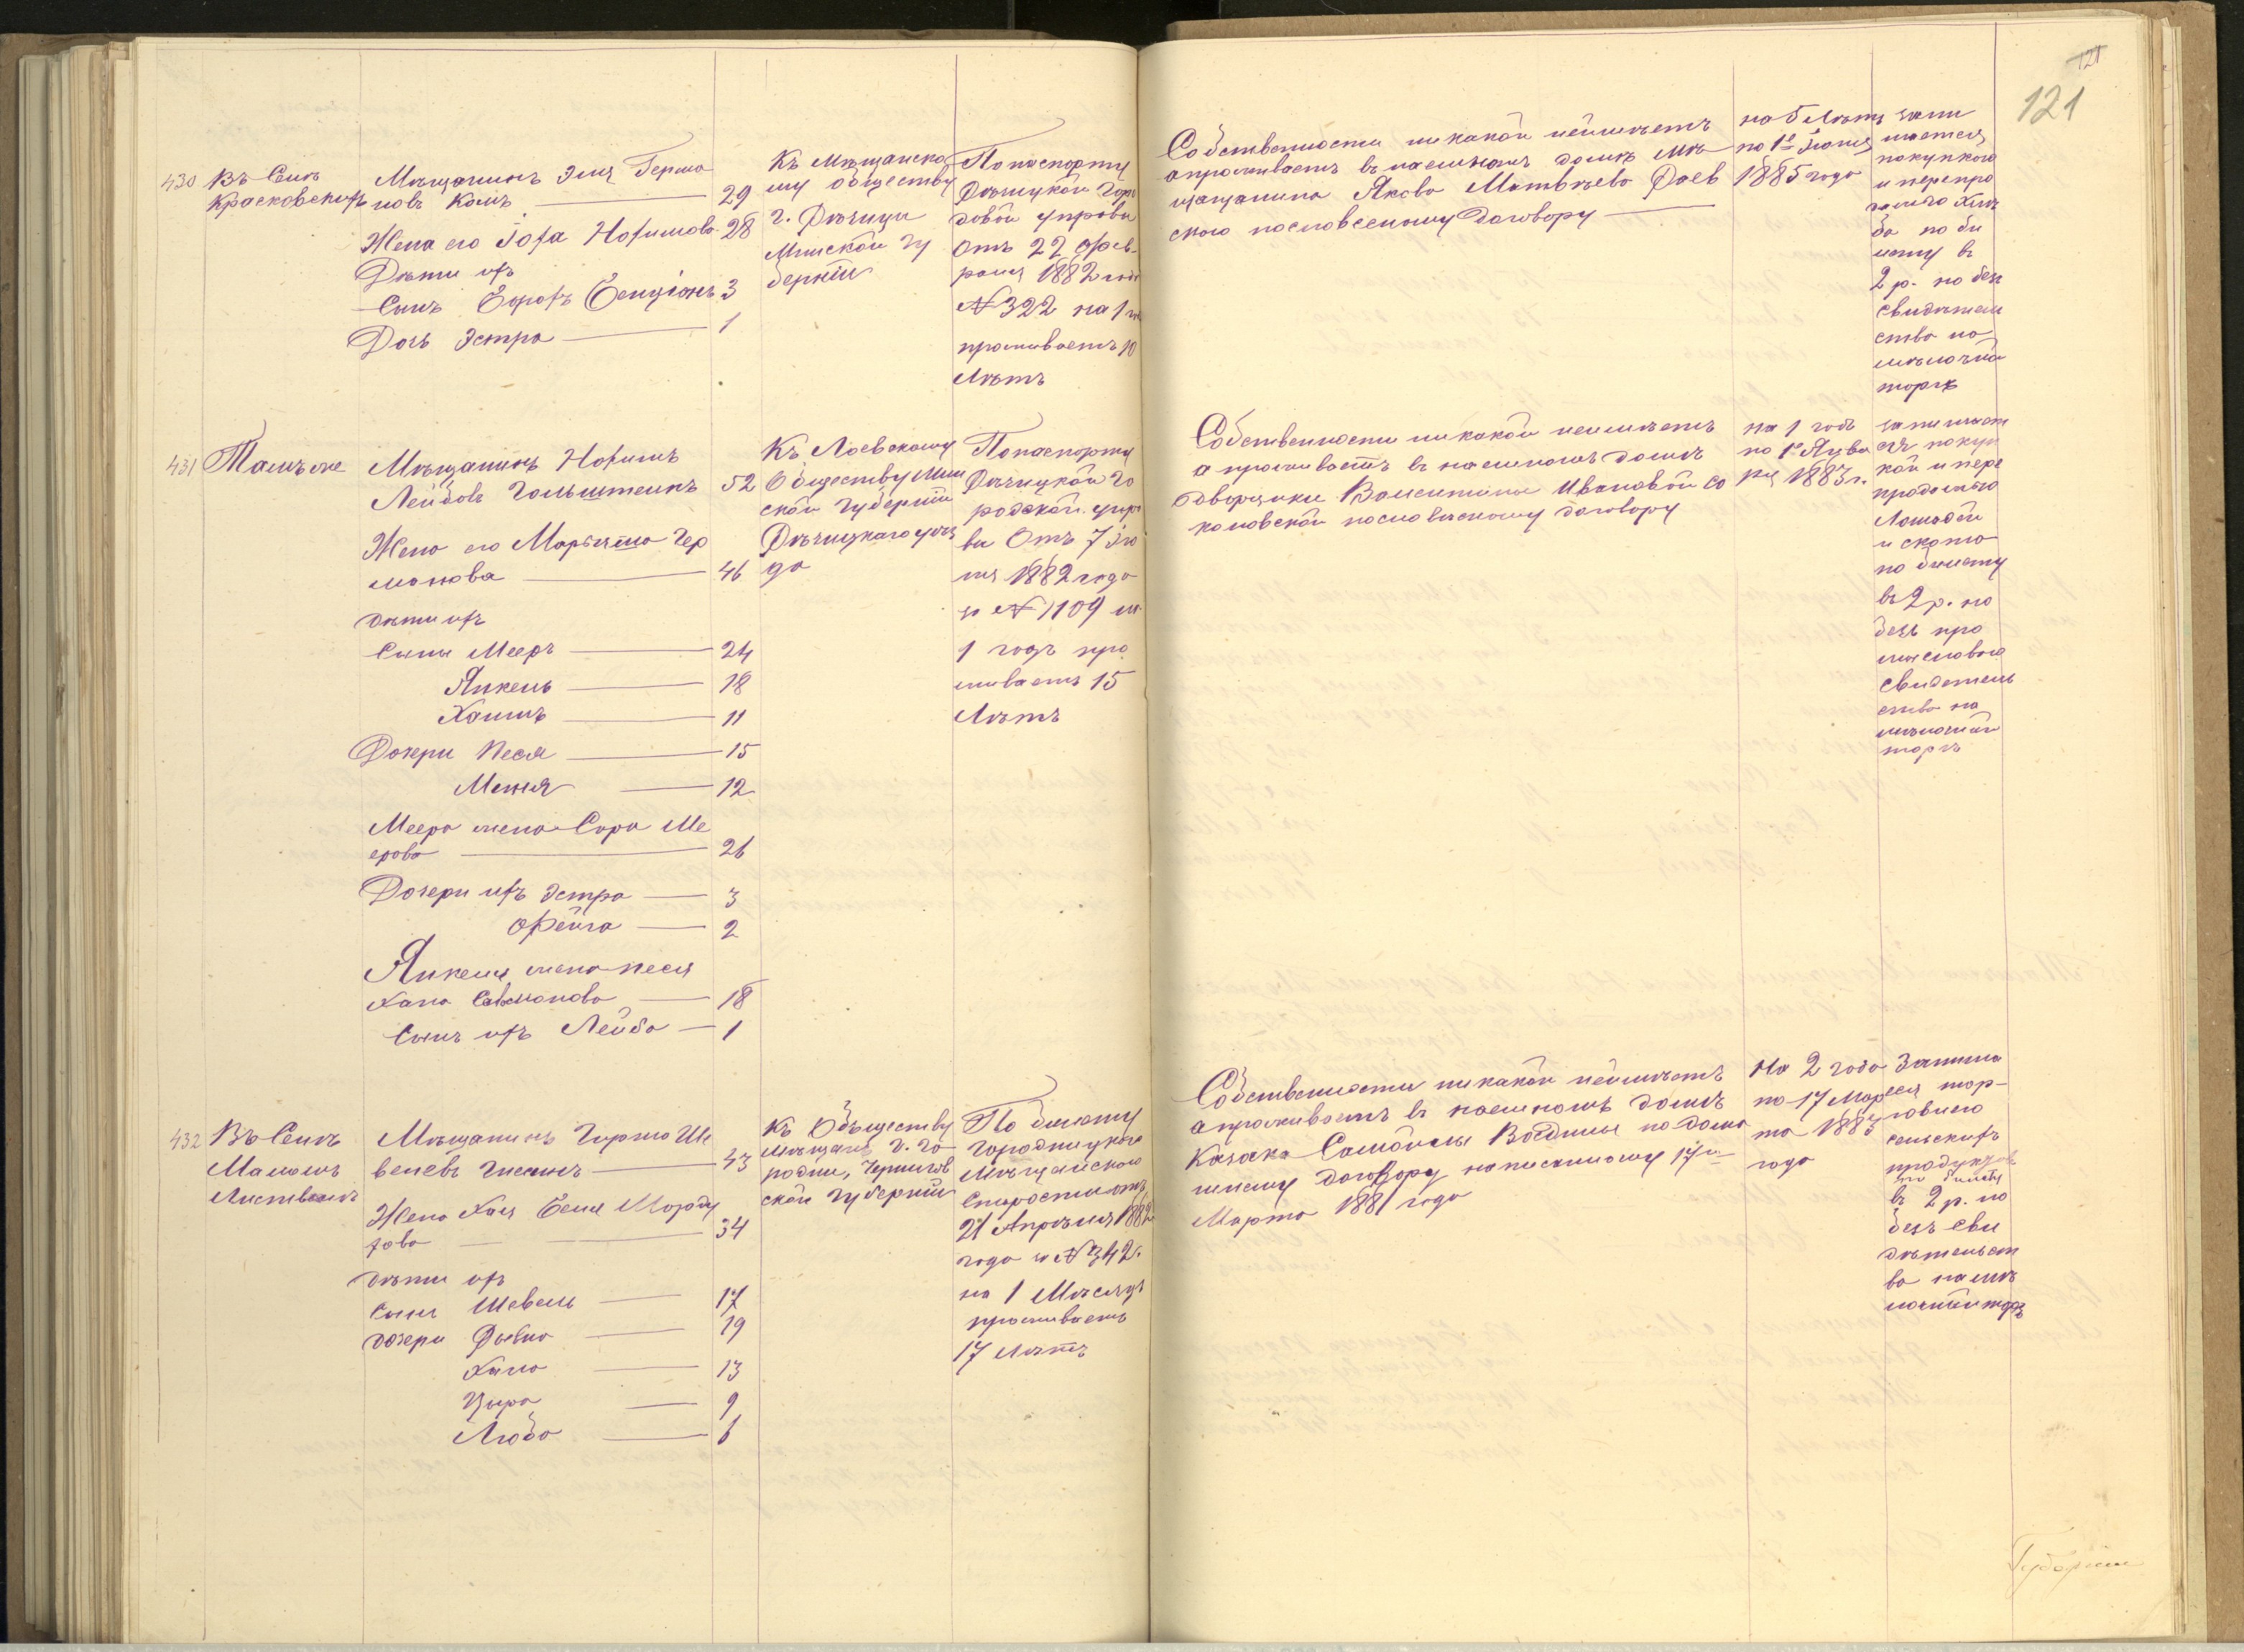 121
121
430
Въ Селѣ
Красковскихъ
Мѣщанинъ Эля Герма
новъ Кацъ — 29
Жена его Хохимова 28
Дѣти ихъ
Сынъ — 3
Дочь Эстра — 1
Къ Мѣщанско
му обществу
г. Рѣчицы
Минской гу
берніи
По паспорту
Рѣчицкой Горо
довой управы
Отъ 22 Фев-
раля 1882 года
№ 322 на 1 го
проживаетъ 10
Лѣтъ
Собственности никакой неимѣетъ
а проживаетъ въ наемномъ домѣ мѣ
щанина Якова Матвѣева Раев
ского пословесному договору
на 5 Лѣтъ
по 1е Іюня
1885 года
зани
мается
покупкою
и перепро
дажею хлѣ
ба по би
лету въ
2 р. но безъ
свидѣтель
ства на
мѣлочной
торгъ
431
Тамъ же
Мѣщанинъ Нохимъ
Лейбовъ Гольштенкъ 52
Жена его Марьяша Гер
манова — 46
дѣти ихъ
Сыны Мееръ — 24
Янкель — 18
Хаимъ — 11
Дочери Песя — 15
Меня — 12
Меера жена Сора Ме
ерова — 26
Дочери ихъ Эстра — 3
Фейга — 2
Янкеля жена Песя
Хана Савмонова — 18
Сынъ ихъ Лейба — 1
Къ Лоевскому
Обществу Мин
ской губерніи
Рѣчицкаго уѣз
да
По паспорту
Рѣчицкой го
родской упра
вы Отъ 7 Iю
ля 1882 года
за № 1109 на
1 годъ про
живаетъ 15
Лѣтъ
Собственности никакой неимѣетъ
а проживаетъ въ наемномъ домѣ
дворянки Валентины Ивановой Со
коловской пословесному договору
на 1 годъ
по 1е Янва
ря 1883 г.
занимает
ся покуп
кой и пере
продажею
Лошадей
и скота
по билету
въ 2 р. но
безъ про
мысловаго
свидетель
ства на
мѣлочной
торгъ
432
Въ Селѣ
Маломъ
Листвене
Мѣщанинъ Гирша Ше
велевъ — 43
Жена Хая Бейля Морду
хова — 34
дѣти ихъ
Сынъ Шевель — 17
дочери Рывка — 19
Хана — 13
Цыра — 9
Люба — 6
Къ Обществу
мѣщанъ г. Го
родни, Чернигов
ской губерніи
По билету
Городницкаго
Мѣщанскаго
Старосты отъ
21 Апрѣля 1882
года за № 342.
на 1 Мѣсяцъ
проживаетъ
17 Лѣтъ
Собственности никакой неимѣетъ
а проживаетъ въ наемномъ домѣ
Казака Самойлы по дома
шнему договору написанному 17го
Марта 1881 года
На 2 года
по 17 Мар
та 1883
года
Занима
ется тор-
говлею
сельскихъ
продуктовъ
по билету
въ 2 р. но
безъ сви
дѣтельст
ва на мѣ
лочной торгъ